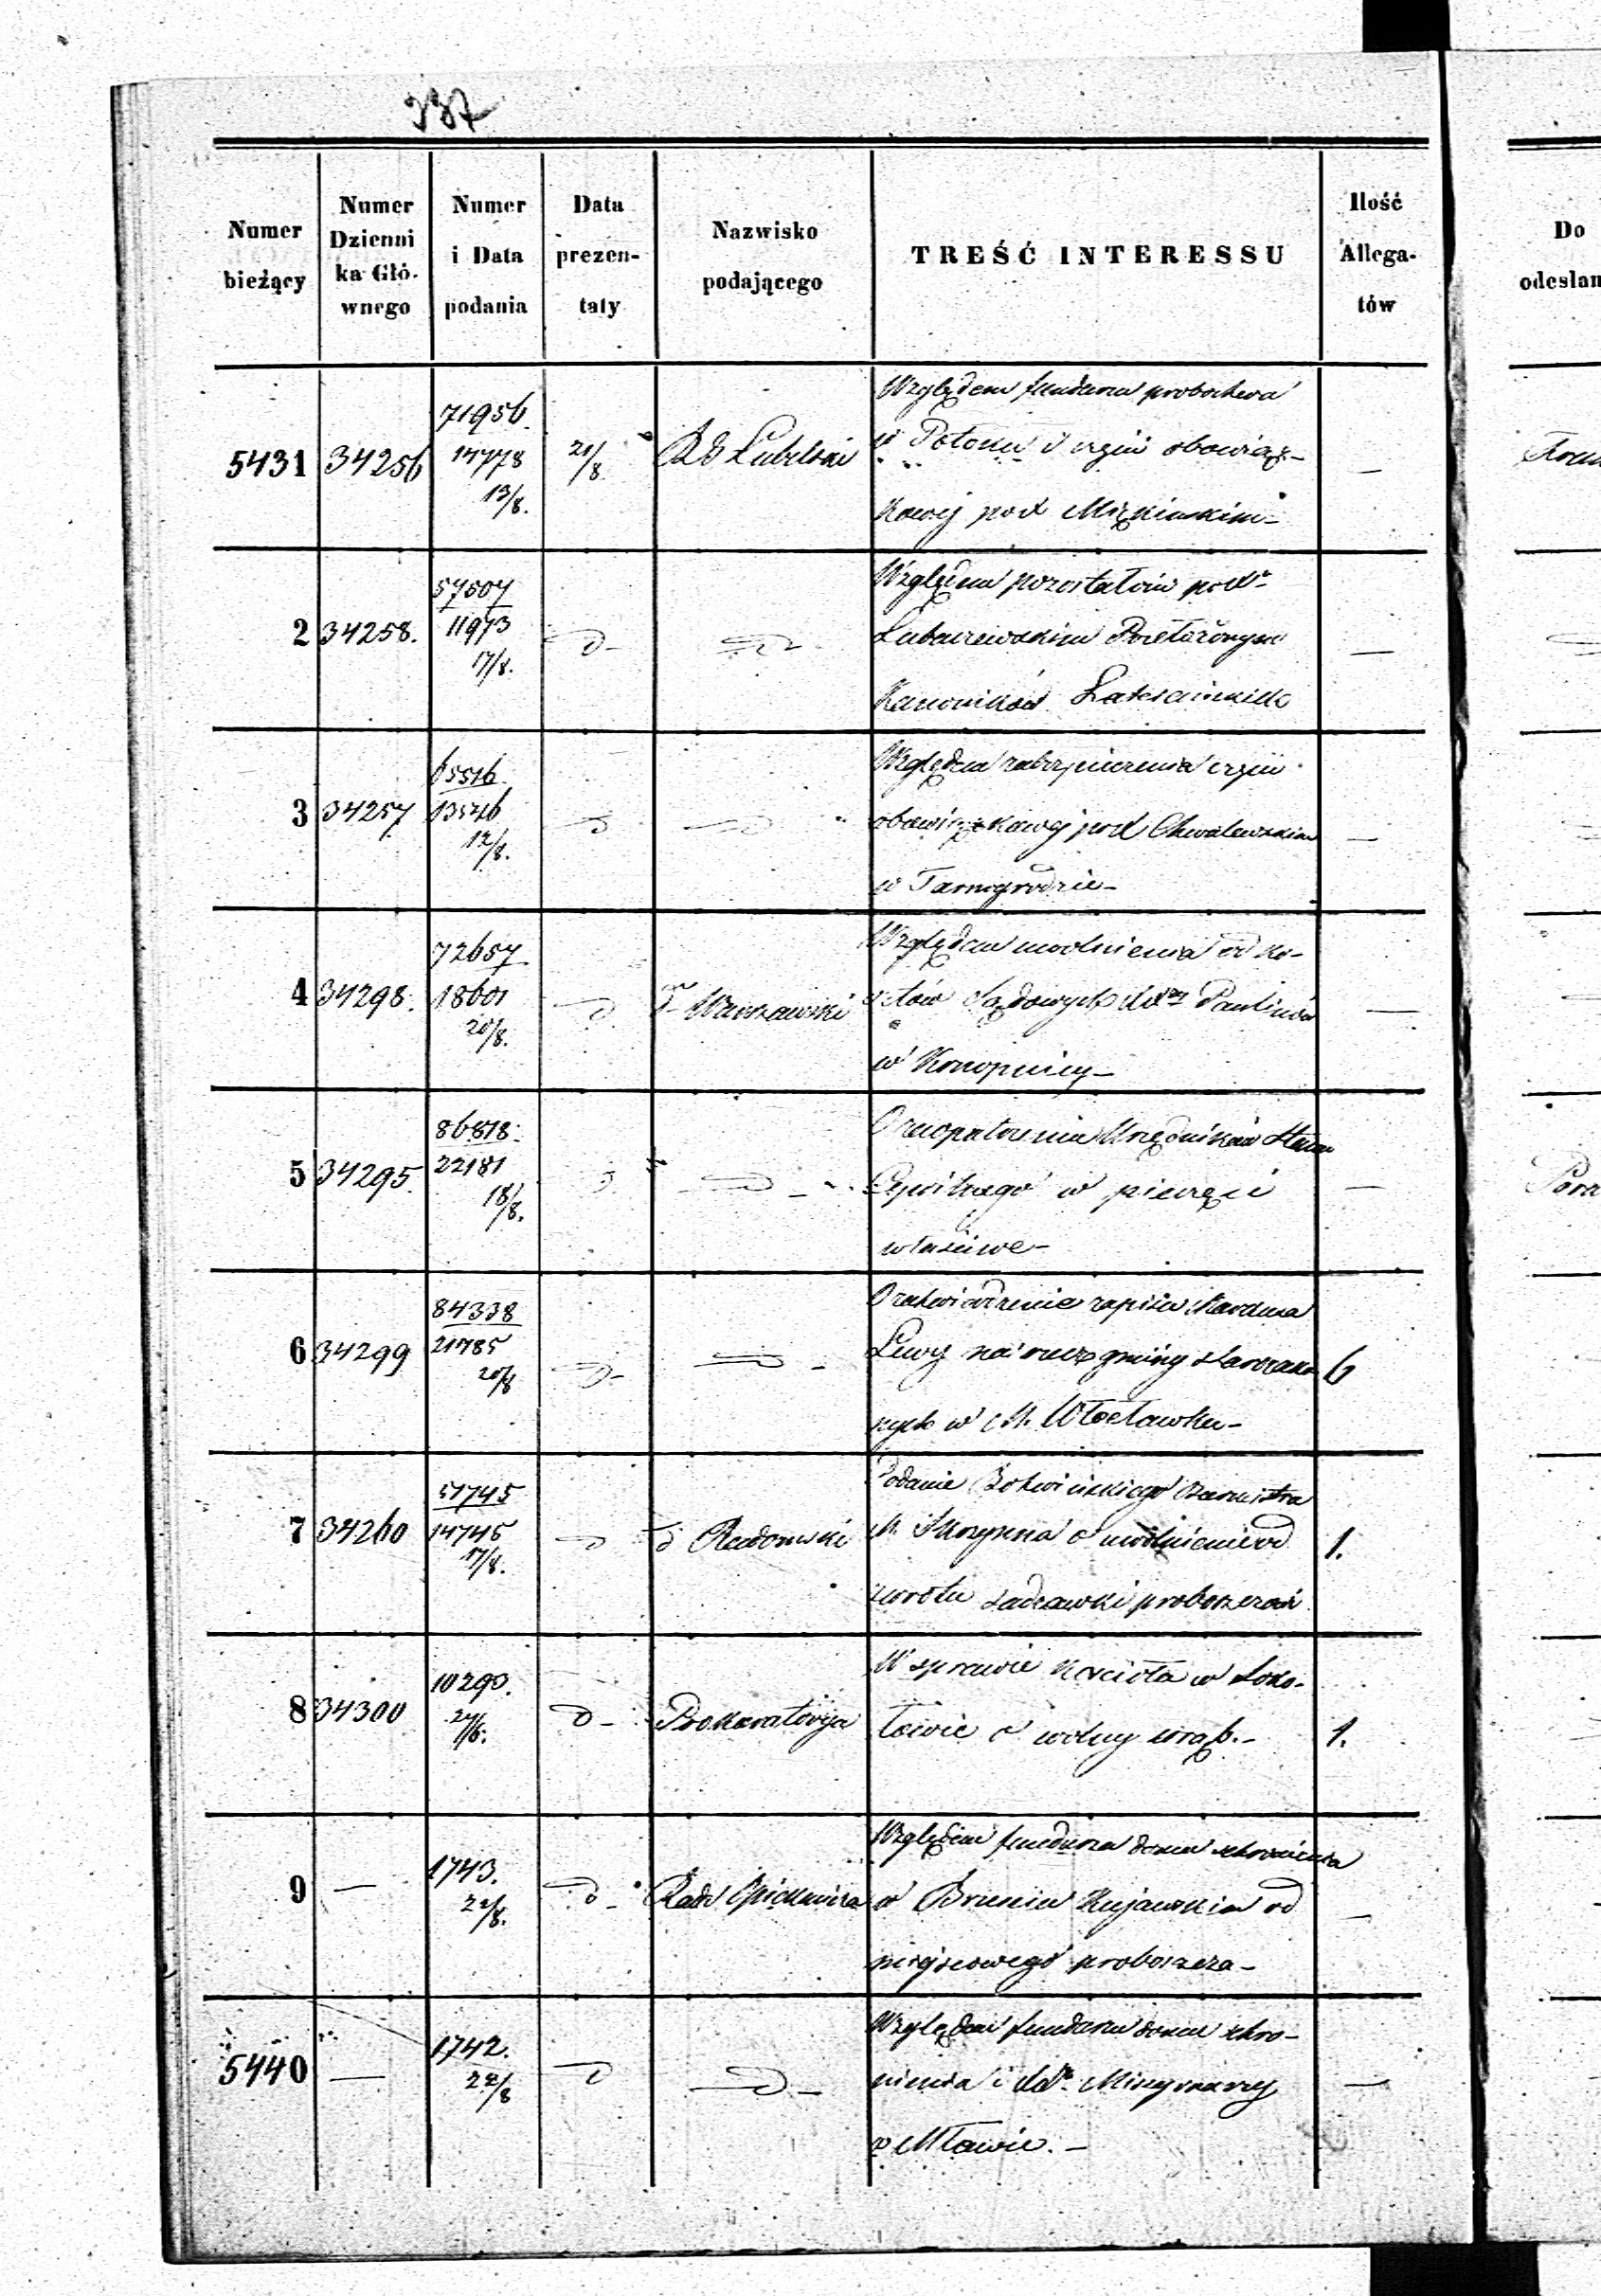 337
Numer bieżący
Numer Dzienni ka Głó. wnego
Numer i Data podania
Data prezen- taty
Nazwisko podającego
TREŚĆ INTERESSU
Ilość Allega- tów
Do odesłan
5431 34256 71956 14778 13/8. 21/8. RG Lubelski
Względem funduszu probostwa
w Potoku i czyni obowiąz-
kowej pod —
2 34258. 57507 11973 17/8. d-
Względem pozostałości po
Kanoników Lateraneńskich —
3 34257 65516 13546 12/8. d
Względem zabezpieczenia czyni
obowiązkowej pod Chwalewskim
w Tarnogrodzie- —
4 34298. 72657 18601 20/8. d Warszawski
Względem uwolnienia od ko-
sztów Sądowych Paulinów
w Konopnicy- —
5 34295. 86818. 22181 18/8. d
O zaopatrzenia Urzędników Stanu
Cywilnego w pieczęci
właściwe- —
6 34299 84338 21785 20/8 d-
O zatwierdzenie zapisu
Lewy na rzecz gminy starozakon
nych w M. Włocławku- 6
7 34260 51745 14745 17/8. d d Radomski
Podanie
M. o uwolnienie od
zwrotu sadzawki proboszczowi 1.
8 34300 10290. d- Prokuratorya
W sprawie kościoła w Soko-
łowie o wolny wrąb.- 1.
9 — 1743. 22/8. d- Rada Opiekuńcza
Względem funduszu domu schronienia
w Brześciu Kujawskim od
miejscowego proboszcza- —
5440 — 1742. 22/8 d d-
Względem funduszu domu schro-
nienia i
w Mławie.- —